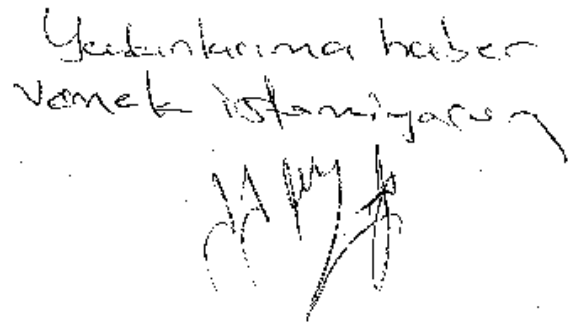 Yakınlarıma haber
vermek istemiyorum